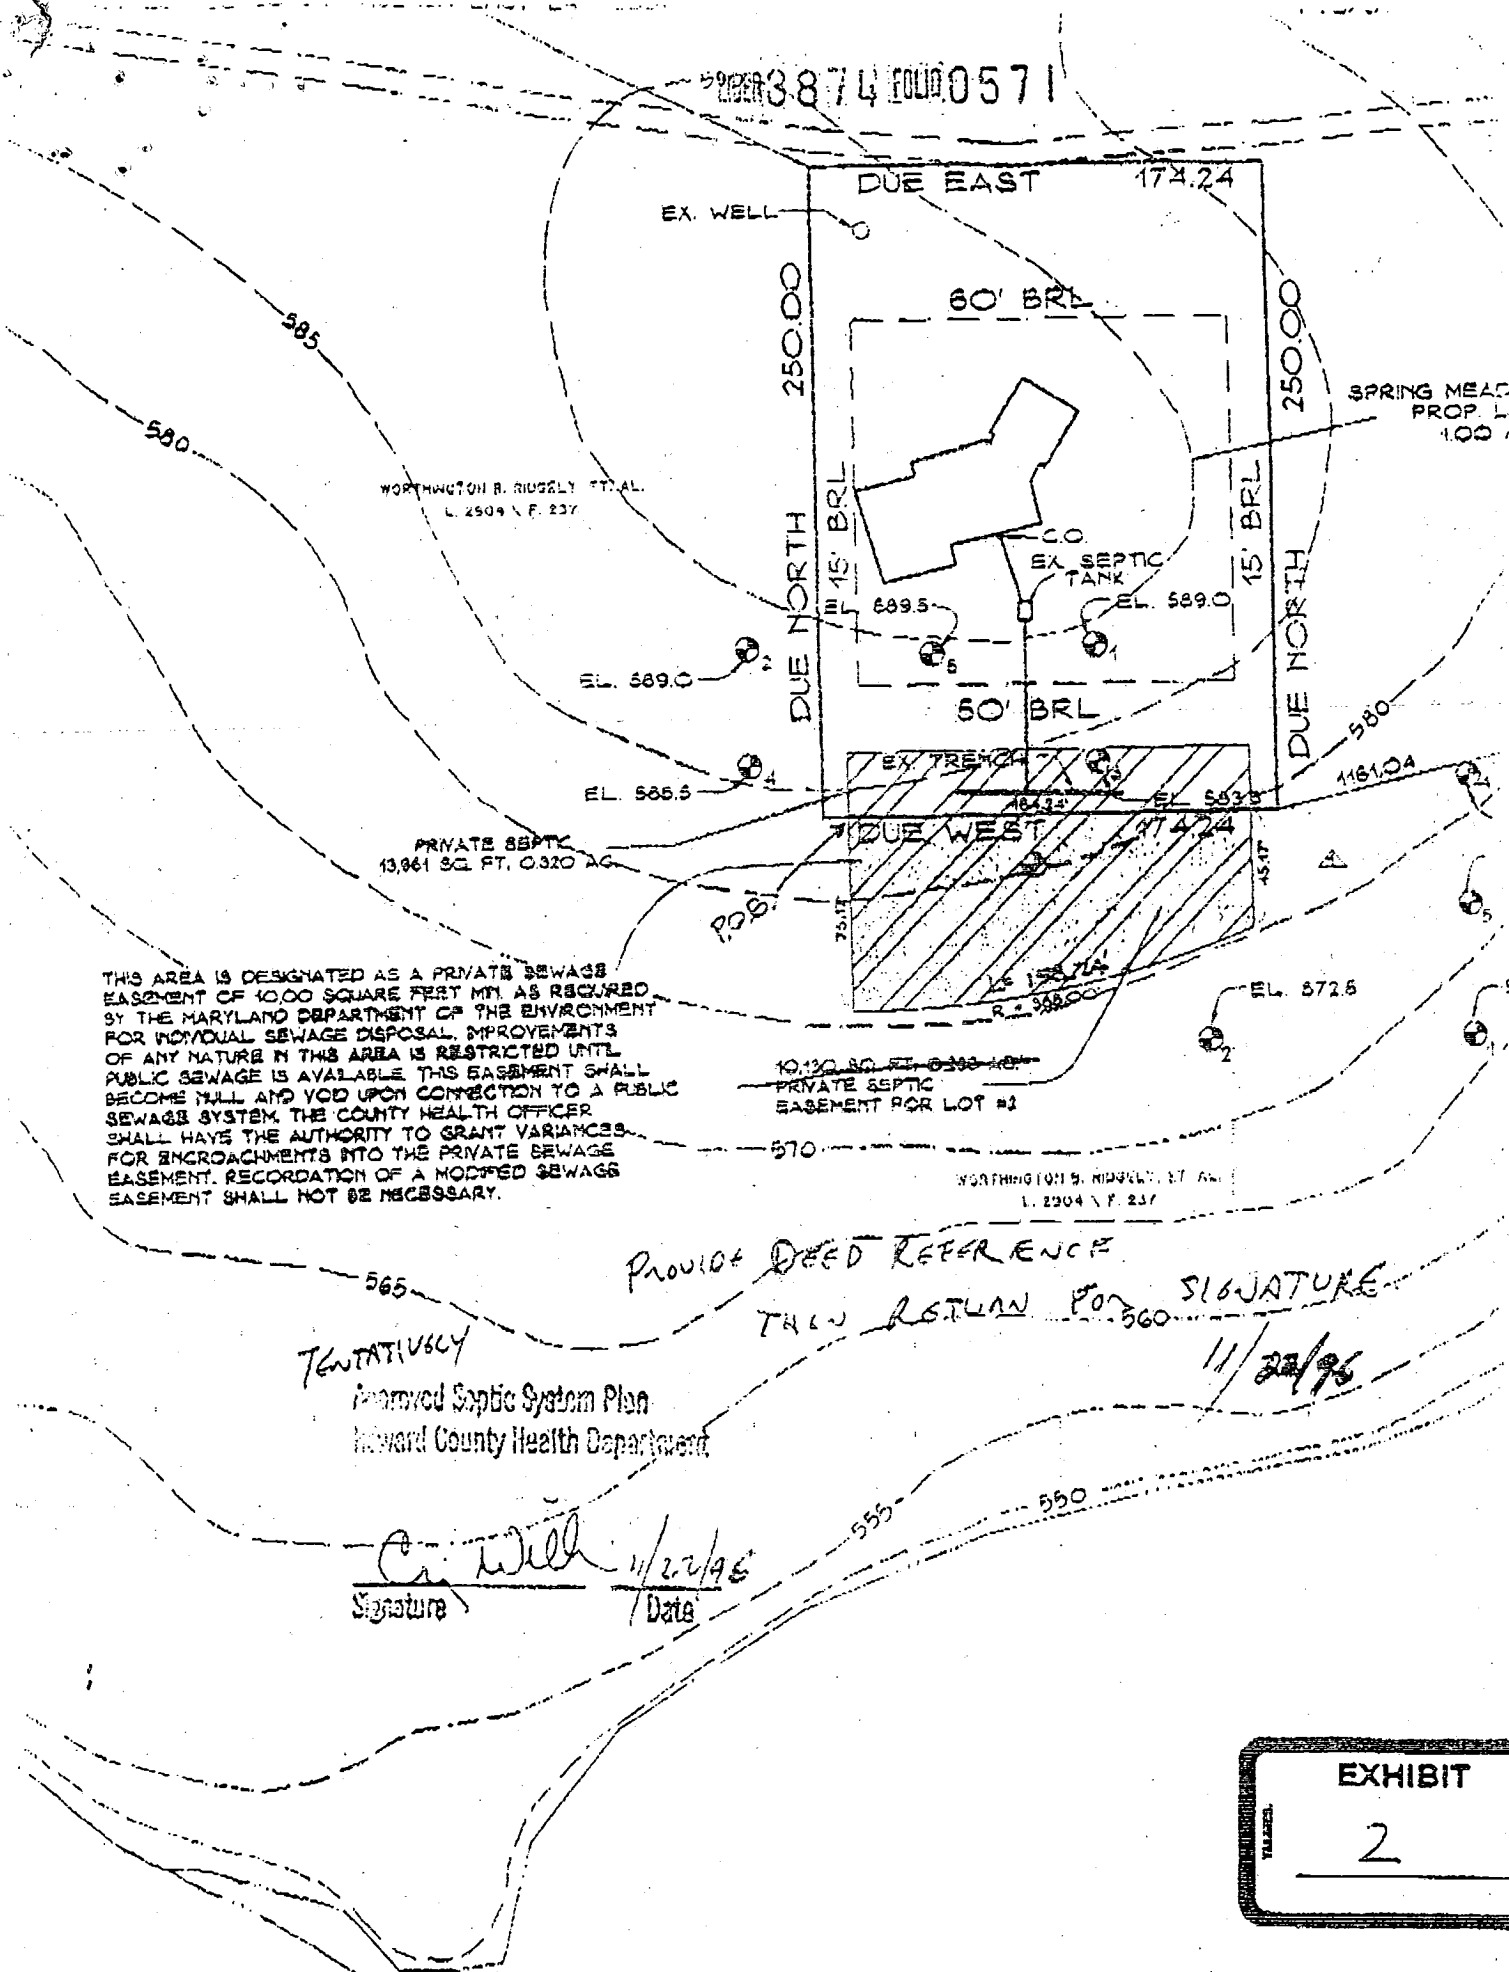 3874 FOLIO 0571
DUE EAST 174.24
EX. WELL
60' BRL
250.00
250.00
585
580
SPRING MEAD
PROP. L
1.00 A
WORTHINGTON B. RIDGELY ET. AL.
L. 2904 \ F. 237
15' BRL
15' BRL
C.O.
EX. SEPTIC
TANK
EL. 589.5
EL. 589.0
DUE NORTH
DUE NORTH
2
5
1
EL. 589.0
60' BRL
580
EX. TRENCH
4
EL. 585.5
1161.04
164.24'
EL. 583.5
DUE WEST 174.24
PRIVATE SEPTIC
13,961 SQ. FT. 0.320 AC.
P.O.B.
75.17'
45.17'
5
THIS AREA IS DESIGNATED AS A PRIVATE SEWAGE
EASEMENT OF 10,00 SQUARE FEET MIN. AS REQUIRED
BY THE MARYLAND DEPARTMENT OF THE ENVIRONMENT
FOR INDIVIDUAL SEWAGE DISPOSAL. IMPROVEMENTS
OF ANY NATURE IN THIS AREA IS RESTRICTED UNTIL
PUBLIC SEWAGE IS AVAILABLE. THIS EASEMENT SHALL
BECOME NULL AND VOID UPON CONNECTION TO A PUBLIC
SEWAGE SYSTEM. THE COUNTY HEALTH OFFICER
SHALL HAVE THE AUTHORITY TO GRANT VARIANCES
FOR ENCROACHMENTS INTO THE PRIVATE SEWAGE
EASEMENT. RECORDATION OF A MODIFIED SEWAGE
EASEMENT SHALL NOT BE NECESSARY.
EL. 572.5
2
10,130 SQ. FT.
PRIVATE SEPTIC
EASEMENT FOR LOT #2
570
WORTHINGTON B. RIDGELY, ET. AL.
L. 2904 \ F. 237
565
PROVIDE DEED REFERENCE
THEN RETURN FOR SIGNATURE
560
11/22/96
TENTATIVELY
Approved Septic System Plan
Howard County Health Department
555
550
11/22/96
Signature
Date
EXHIBIT
2